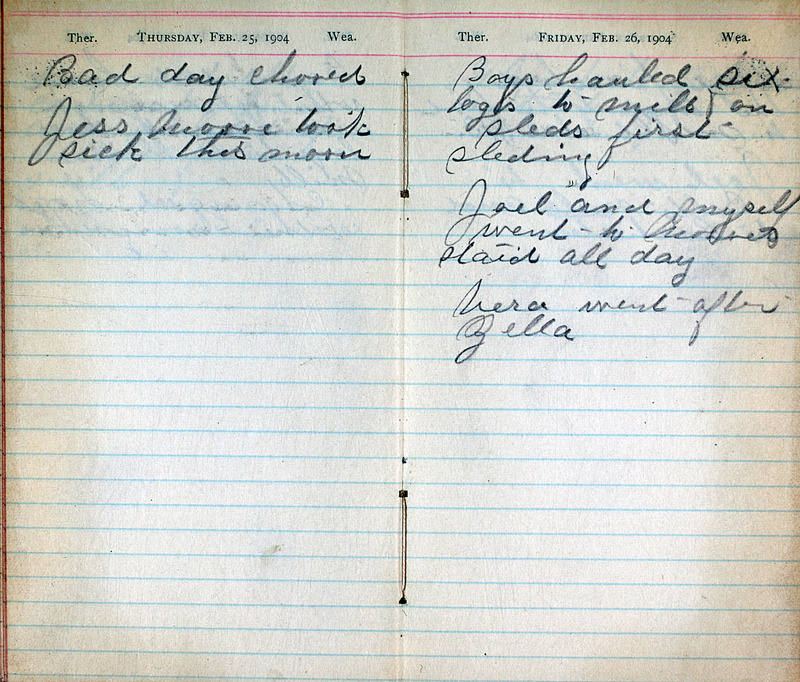 Ther. Thursday, Feb. 25, 1904 Wea.
Bad day chored
Jess Moore took
sick this morn
Ther. Friday, Feb. 26, 1904 Wea.
Boys hauled six
logs to mill on
sleds first
sleding
Joel and myself
went to Moores
staid all day
Vera went after
Zella